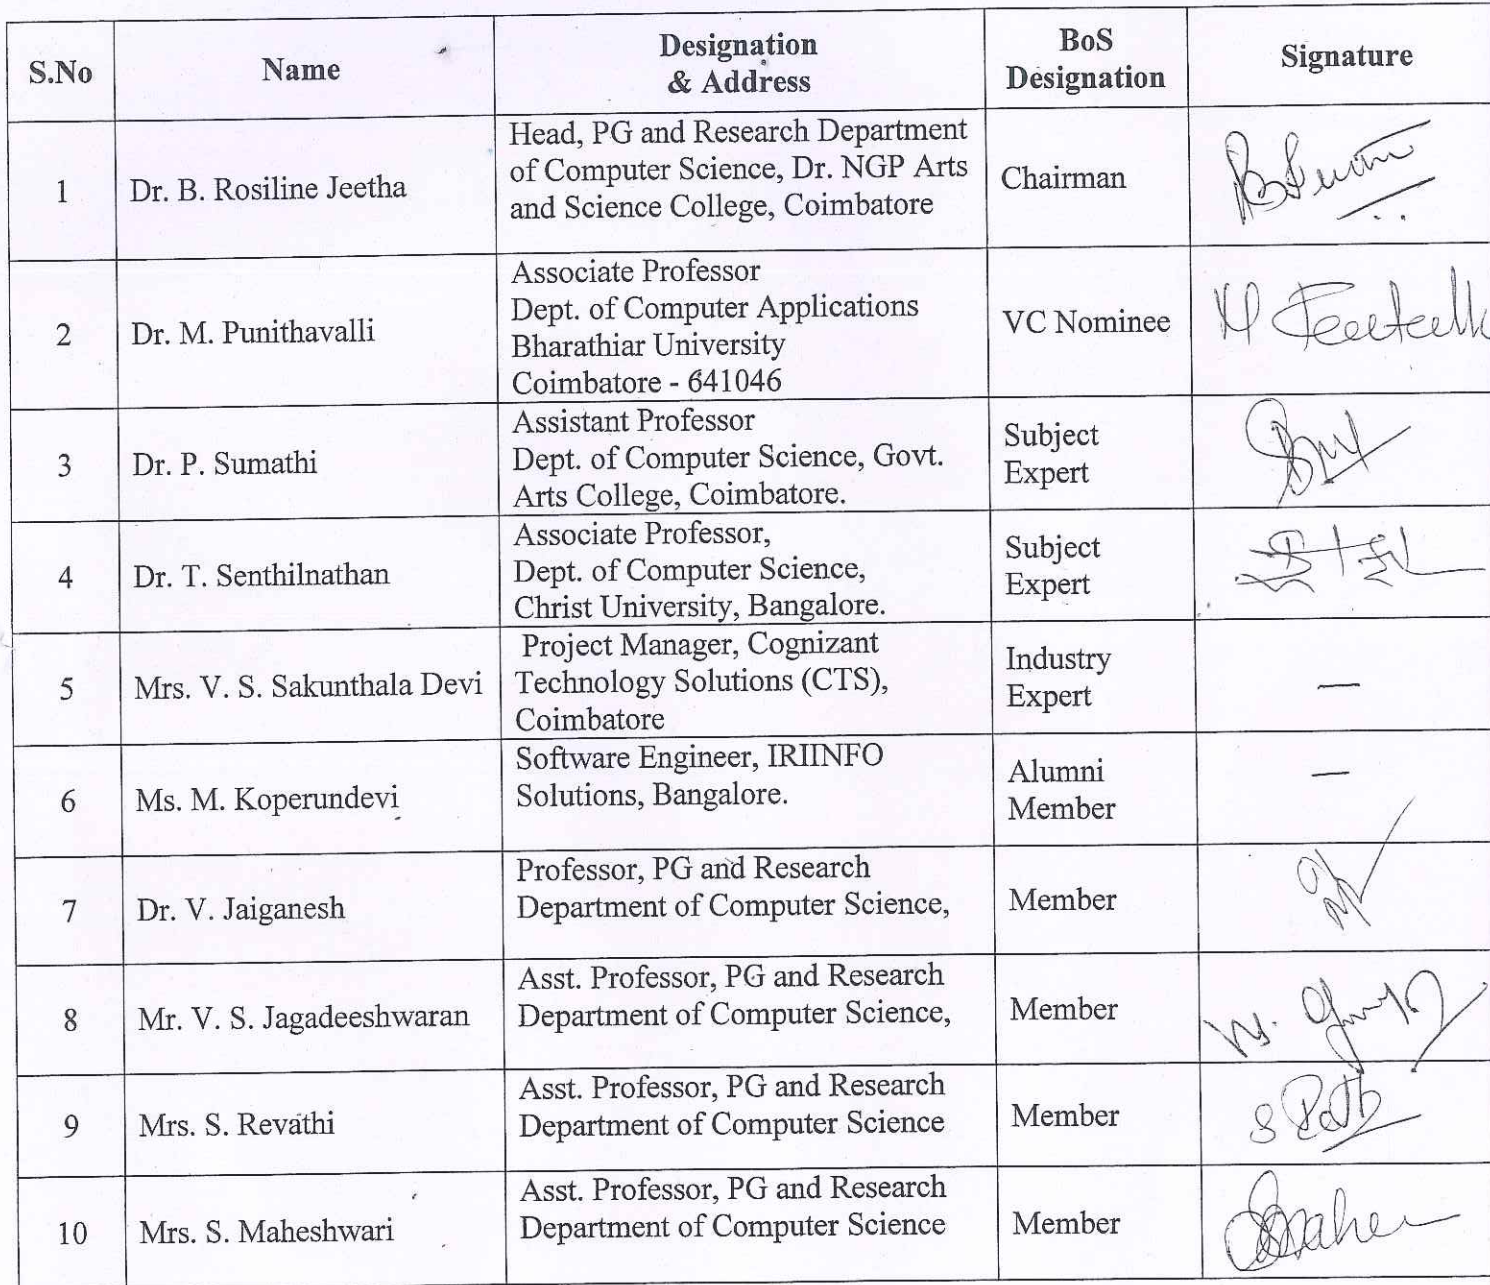 S.No
Name
Designation
& Address
BoS
Designation
Signature
1
Dr. B. Rosiline Jeetha
Head, PG and Research Department
of Computer Science, Dr. NGP Arts
and Science College, Coimbatore
Chairman
2
Dr. M. Punithavalli
Associate Professor
Dept. of Computer Applications
Bharathiar University
Coimbatore - 641046
VC Nominee
3
Dr. P. Sumathi
Assistant Professor
Dept. of Computer Science, Govt.
Arts College, Coimbatore.
Subject
Expert
4
Dr. T. Senthilnathan
Associate Professor,
Dept. of Computer Science,
Christ University, Bangalore.
Subject
Expert
5
Mrs. V. S. Sakunthala Devi
Project Manager, Cognizant
Technology Solutions (CTS),
Coimbatore
Industry
Expert
—
6
Ms. M. Koperundevi
Software Engineer, IRIINFO
Solutions, Bangalore.
Alumni
Member
—
7
Dr. V. Jaiganesh
Professor, PG and Research
Department of Computer Science,
Member
8
Mr. V. S. Jagadeeshwaran
Asst. Professor, PG and Research
Department of Computer Science,
Member
9
Mrs. S. Revathi
Asst. Professor, PG and Research
Department of Computer Science
Member
10
Mrs. S. Maheshwari
Asst. Professor, PG and Research
Department of Computer Science
Member